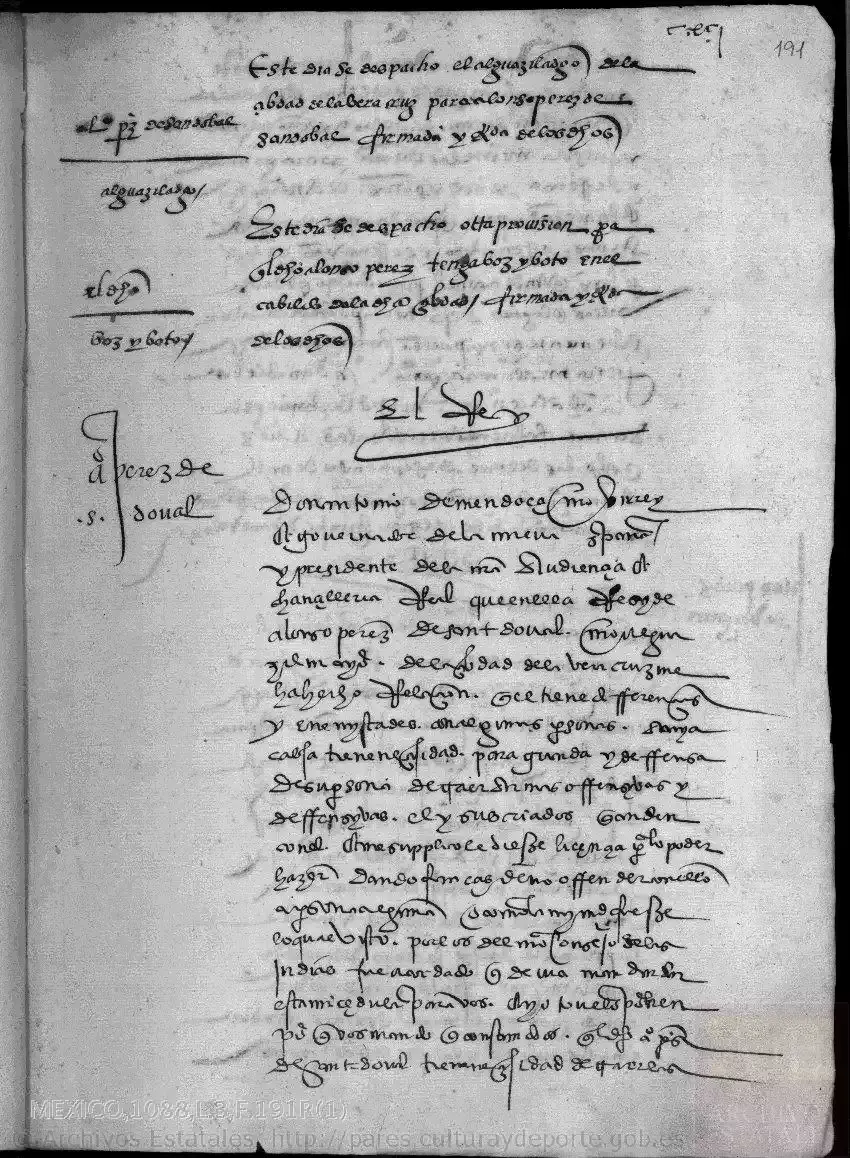 191
Este dia se despacho el alguaziladgo de la
çibdad de la vera cruz para alonso perez de
sandobal firmada y Rda de los dhos
Aº pz de sandobal
alguaziladgo /
Este dia se despacho otta provision pa
quel dho alonso perez tenga boz y boto en el
cabildo de la dha çibdad / firmada y Rda
de los dhos
el dho
boz y boto /
El Rey
aº perez de
s. doual
Don antonio de mendoça mio visrrey
et governador de la nueva españa /
y presidente de la mia Audiençia et
chançilleria Real que en ella Reside
alonso perez de sant doual. mio
de la çibdad de la vera cruz me
ha hecho Relaçion. quel tiene differençias
y enemystades. con algunas psonas. a cuya
cabsa tiene neçesidad. para guarda y deffensa
de su psona de traer armas offensyvas y
deffensyvas. el y sus criados que anden
con el. et me supplico le diesse liçençia pa lo poder
hazer dando fianças de no offender con ellas
a psona alguna o como la my md fuesse
lo qual visto. por los del mio Consejo de las
Indias fue acordado q devia mandar dar
esta mi çedula para vos. E yo tovelo por bien
por q vos mando q constandoos. quel dho aº ps
de sant doual tiene neçesidad de traer las
MEXICO,1088,L.3,F.191R(1)
© Archivos Estatales, http://pares.culturaydeporte.gob.es